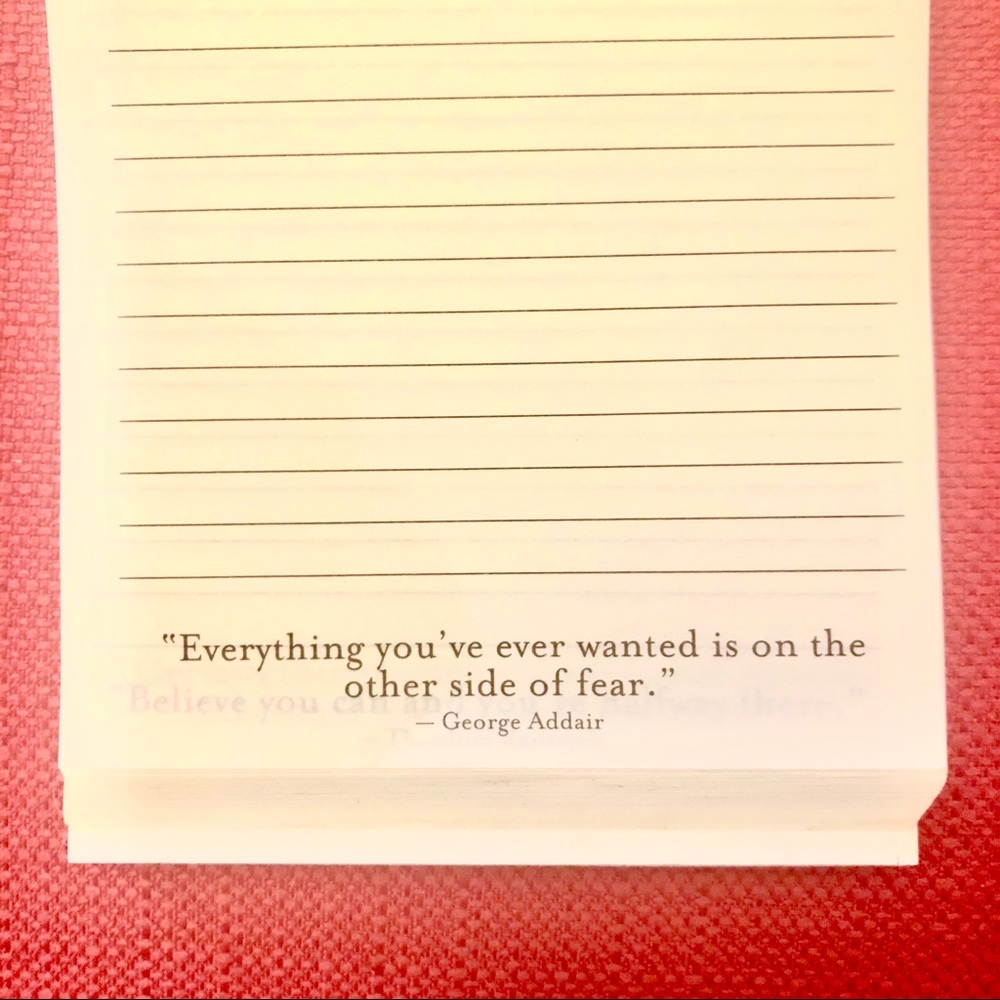 “Everything you’ve ever wanted is on the
other side of fear.”
— George Addair
"Believe you can and you're halfway there."